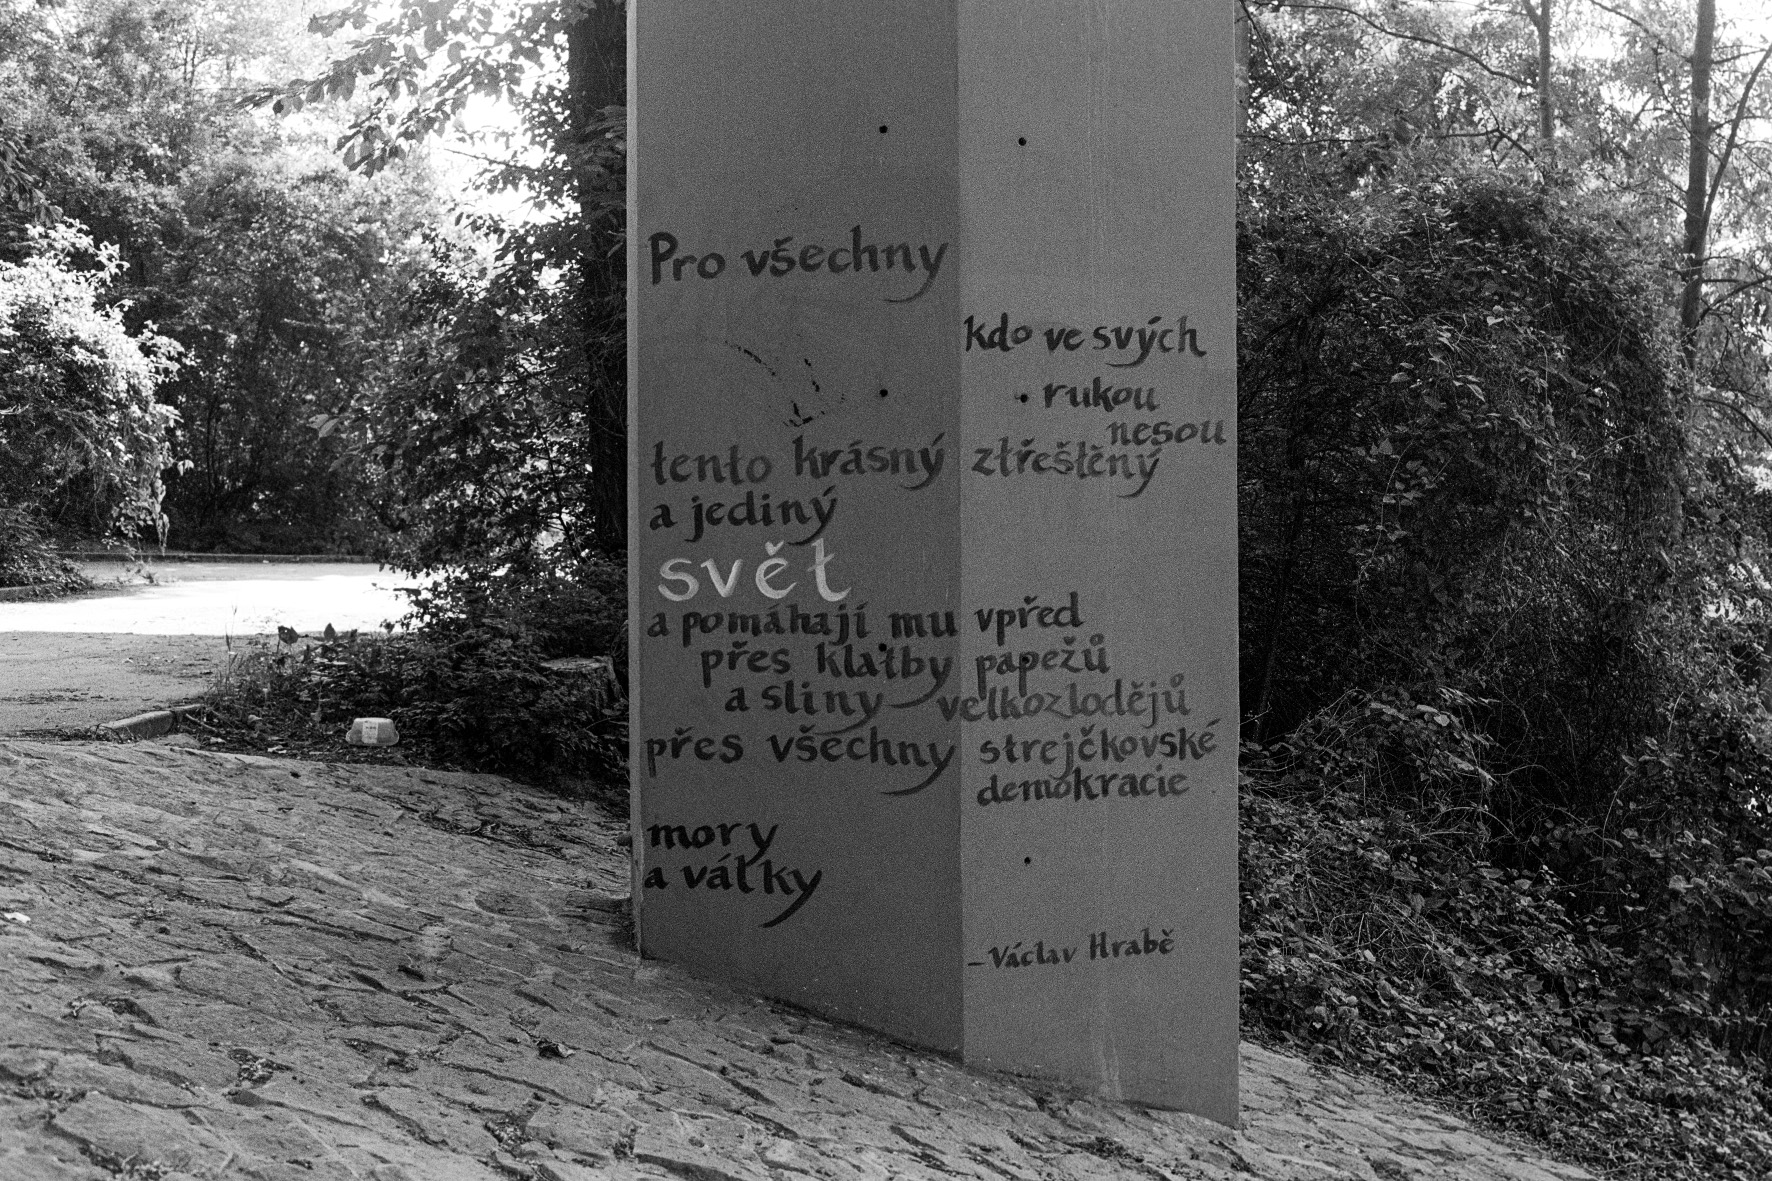 Pro všechny
kdo ve svých
rukou
nesou
tento krásný ztřeštěný
a jediný
svět
a pomáhají mu vpřed
přes klatby papežů
a sliny velkozlodějů
přes všechny strejčkovské
demokracie
mory
a války
-Václav Hrabě